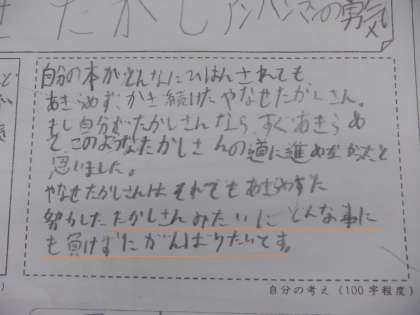 せ たかし アンパンマンの勇気
自分の本がどんなにひはんされても
あきらめず、かき続けたやなせたかしさん。
もし自分がたかしさんなら、すぐあきらめ
て、このようなたかしさんの道に進めなかったと
思いました。
やなせたかしさんはそれでもあきらめずた
努力したたかしさんみたいにどんな事に
も負けずにがんばりたいです。
自分の考え（100字程度）